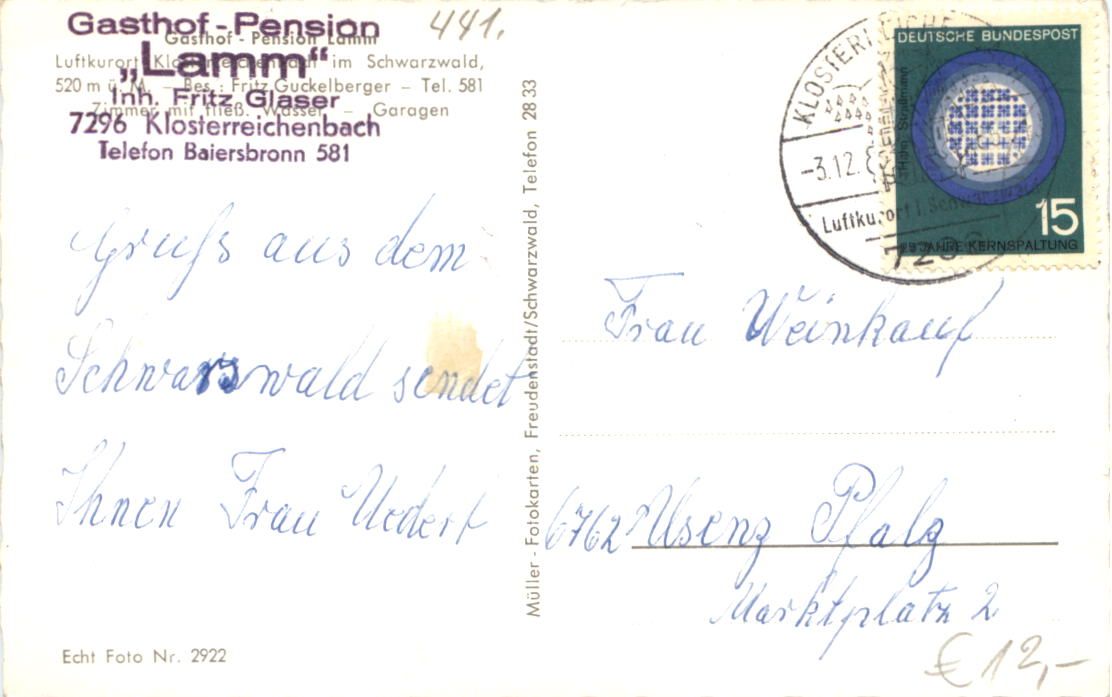 Gasthof - Pension
„Lamm“
Inh. Fritz Glaser
7296 Klosterreichenbach
Telefon Baiersbronn 581
441.
Gasthof - Pension Lamm
Luftkurort Klosterreichenbach im Schwarzwald,
520 m ü. M. — Bes.: Fritz Guckelberger — Tel. 581
Zimmer mit fließ. Wasser — Garagen
Gruß aus dem
Schwarzwald sendet
Ihnen Frau Uedert
Echt Foto Nr. 2922
Müller - Fotokarten, Freudenstadt/Schwarzwald, Telefon 28 33
KLOSTERREICHE
-3.12.
Luftkurort i. Schwarzwald
7296
DEUTSCHE BUNDESPOST
Hahn Straßmann
15
25 JAHRE KERNSPALTUNG
Frau Weinkauf
6762 Usenz Pfalz
Marktplatz 2
€ 12,-